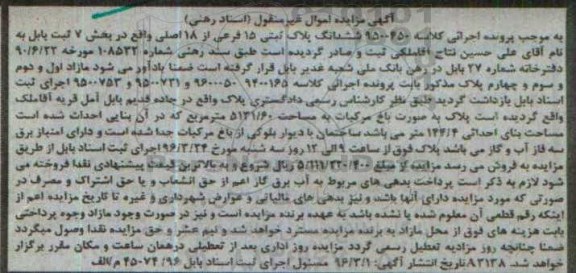 آگهی مزایده اموال غیرمنقول (اسناد رهنی)
به موجب پرونده اجرائی کلاسه ۹۵۰۰۴۵۰ ششدانگ پلاک ثبتی ۱۵ فرعی از ۱۸ اصلی واقع در بخش ۷ ثبت بابل به
نام آقای علی حسین نتاج آقاملکی ثبت و صادر گردیده است طبق سند رهنی شماره ۱۰۸۵۳۲ مورخه ۹۰/۶/۲۲
دفترخانه شماره ۲۷ بابل در رهن بانک ملی شعبه غدیر بابل قرار گرفته است ضمنا یادآور می شود مازاد اول و دوم
و سوم و چهارم پلاک مذکور بابت پرونده اجرائی کلاسه ۹۴۰۰۱۶۵ و ۹۶۰۰۰۵۰ و ۹۵۰۰۷۳۱ و ۹۵۰۰۷۵۳ اجرای ثبت
اسناد بابل بازداشت گردید طبق نظر کارشناس رسمی دادگستری پلاک واقع در جاده قدیم بابل آمل قریه آقاملک
واقع گردیده است پلاک به صورت باغ مرکبات به مساحت ۵۱۳۱/۶۰ مترمربع که در آن بنایی احداث شده است
مساحت بنای احداثی ۱۴۴/۴ متر می باشد ساختمان با دیوار بلوکی از باغ مرکبات جدا شده است و دارای امتیاز برق
سه فاز آب و گاز می باشد پلاک فوق از ساعت ۹ الی ۱۲ روز سه شنبه مورخ ۹۶/۳/۲۳ اجرای ثبت اسناد بابل از طریق
مزایده به فروش می رسد مزایده از مبلغ ریال شروع و به بالاترین قیمت پیشنهادی نقدا فروخته می
شود لازم به ذکر است پرداخت بدهی های مربوط به آب برق گاز اعم از حق انشعاب و یا حق اشتراک و مصرف در
صورتی که مورد مزایده دارای آنها باشد و نیز بدهی های مالیاتی و عوارض شهرداری و غیره تا تاریخ مزایده اعم از
اینکه رقم قطعی آن معلوم شده یا نشده باشد به عهده برنده مزایده است و نیز در صورت وجود مازاد وجوه پرداختی
بابت هزینه های فوق از محل مازاد به برنده مزایده مسترد خواهد شد و نیم عشر و حق مزایده نقدا وصول میگردد
ضمنا چنانچه روز مزایده تعطیل رسمی گردد مزایده روز اداری بعد از تعطیلی درهمان ساعت و مکان مقرر برگزار
خواهد شد. ۸۳۱۳۸ تاریخ انتشار آگهی: ۹۶/۳/۱ مسئول اجرای ثبت اسناد بابل ۴۵۰۷۴/۹۶ م/الف